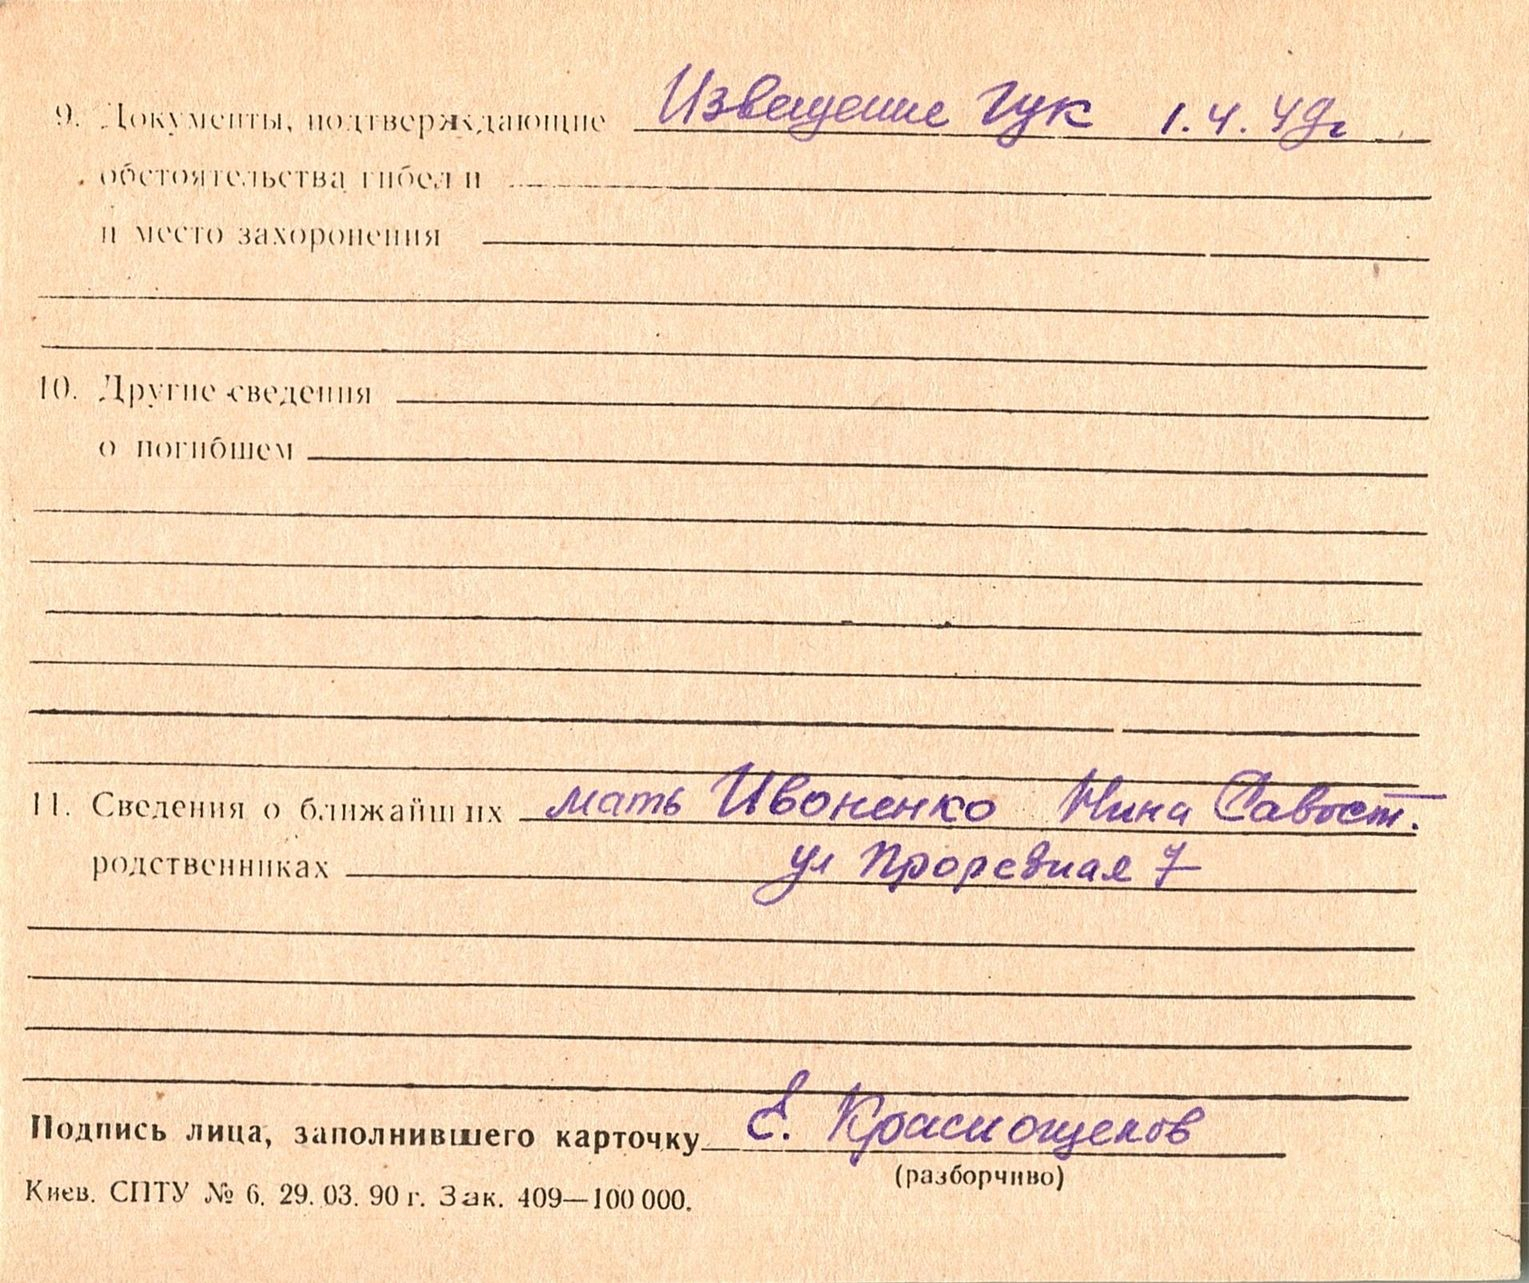 9. Документы, подтверждающие Извещение ГУК 1.4.49г
обстоятельства гибели
и место захоронения
10. Другие сведения
о погибшем
11. Сведения о ближайших мать Ивоненко Нина Савост.
родственниках ул Прорезная 7
Подпись лица, заполнившего карточку Е. Краснощеков
(разборчиво)
Киев. СПТУ № 6. 29. 03. 90 г. Зак. 409—100 000.